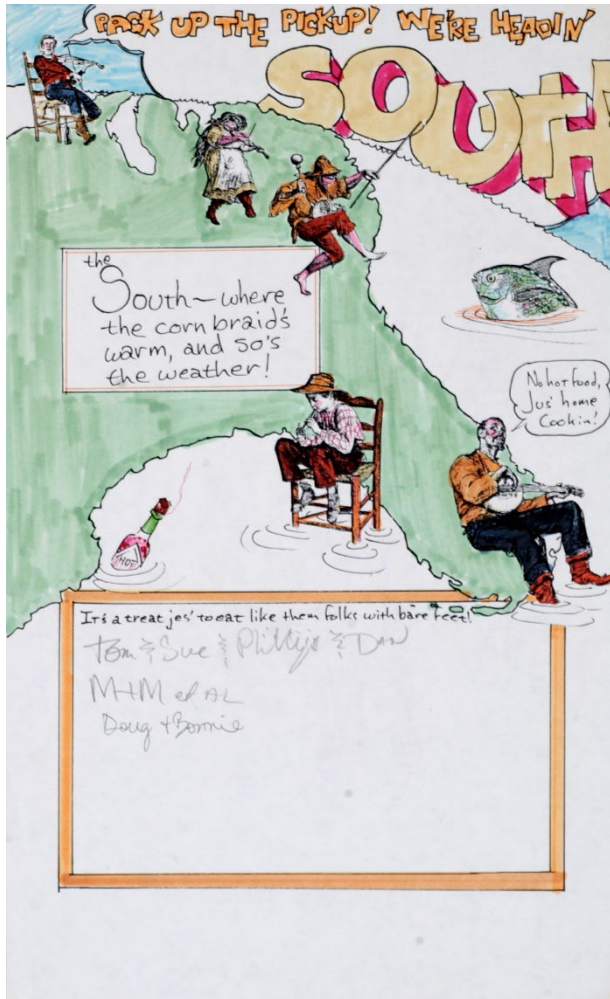 PACK UP THE PICKUP! WE'RE HEADIN'
SOUTH
the
South – where
the corn braid's
warm, and so's
the weather!
No hot food,
Jus' home
Cookin'!
HOT
It's a treat jes' to eat like them folks with bare feet!
Tom & Sue & Phillip & Dan
M+M et AL
Doug + Bonnie